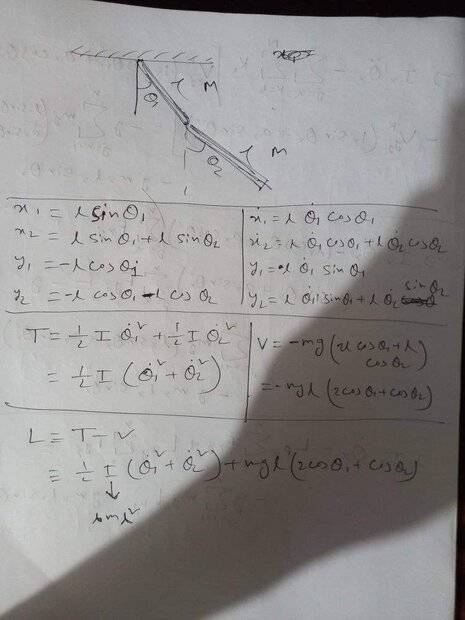 θ₁ l M
θ₂ l M
x₁ = l sinθ₁
x₂ = l sinθ₁ + l sinθ₂
y₁ = -l cosθ₁
y₂ = -l cosθ₁ - l cosθ₂
ẋ₁ = l θ̇₁ cosθ₁
ẋ₂ = l θ̇₁ cosθ₁ + l θ̇₂ cosθ₂
ẏ₁ = l θ̇₁ sinθ₁
ẏ₂ = l θ̇₁ sinθ₁ + l θ̇₂ sinθ₂
T = ½ I θ̇₁² + ½ I θ̇₂²
= ½ I (θ̇₁² + θ̇₂²)
V = -mg (2l cosθ₁ + l
cosθ₂)
= -mgl (2cosθ₁ + cosθ₂)
L = T - V
= ½ I (θ̇₁² + θ̇₂²) + mgl (2cosθ₁ + cosθ₂)
↓
ml²